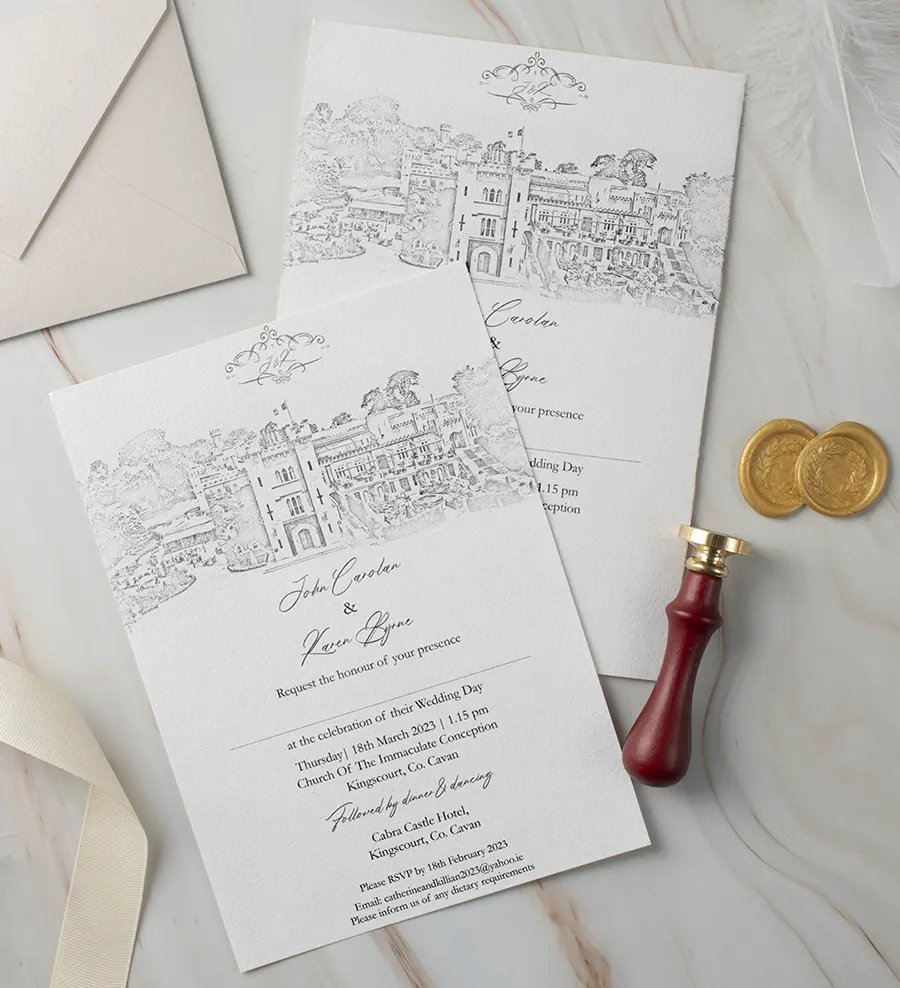 J&K
John Carolan
&
Karen Byrne
Request the honour of your presence
at the celebration of their Wedding Day
Thursday| 18th March 2023 | 1.15 pm
Church Of The Immaculate Conception
Kingscourt, Co. Cavan
Followed by dinner & dancing
Cabra Castle Hotel,
Kingscourt, Co. Cavan
Please RSVP by 18th February 2023
Email: catherineandkillian2023@yahoo.ie
Please inform us of any dietary requirements
J&K
Carolan
&
Byrne
your presence
dding Day
1.15 pm
ception